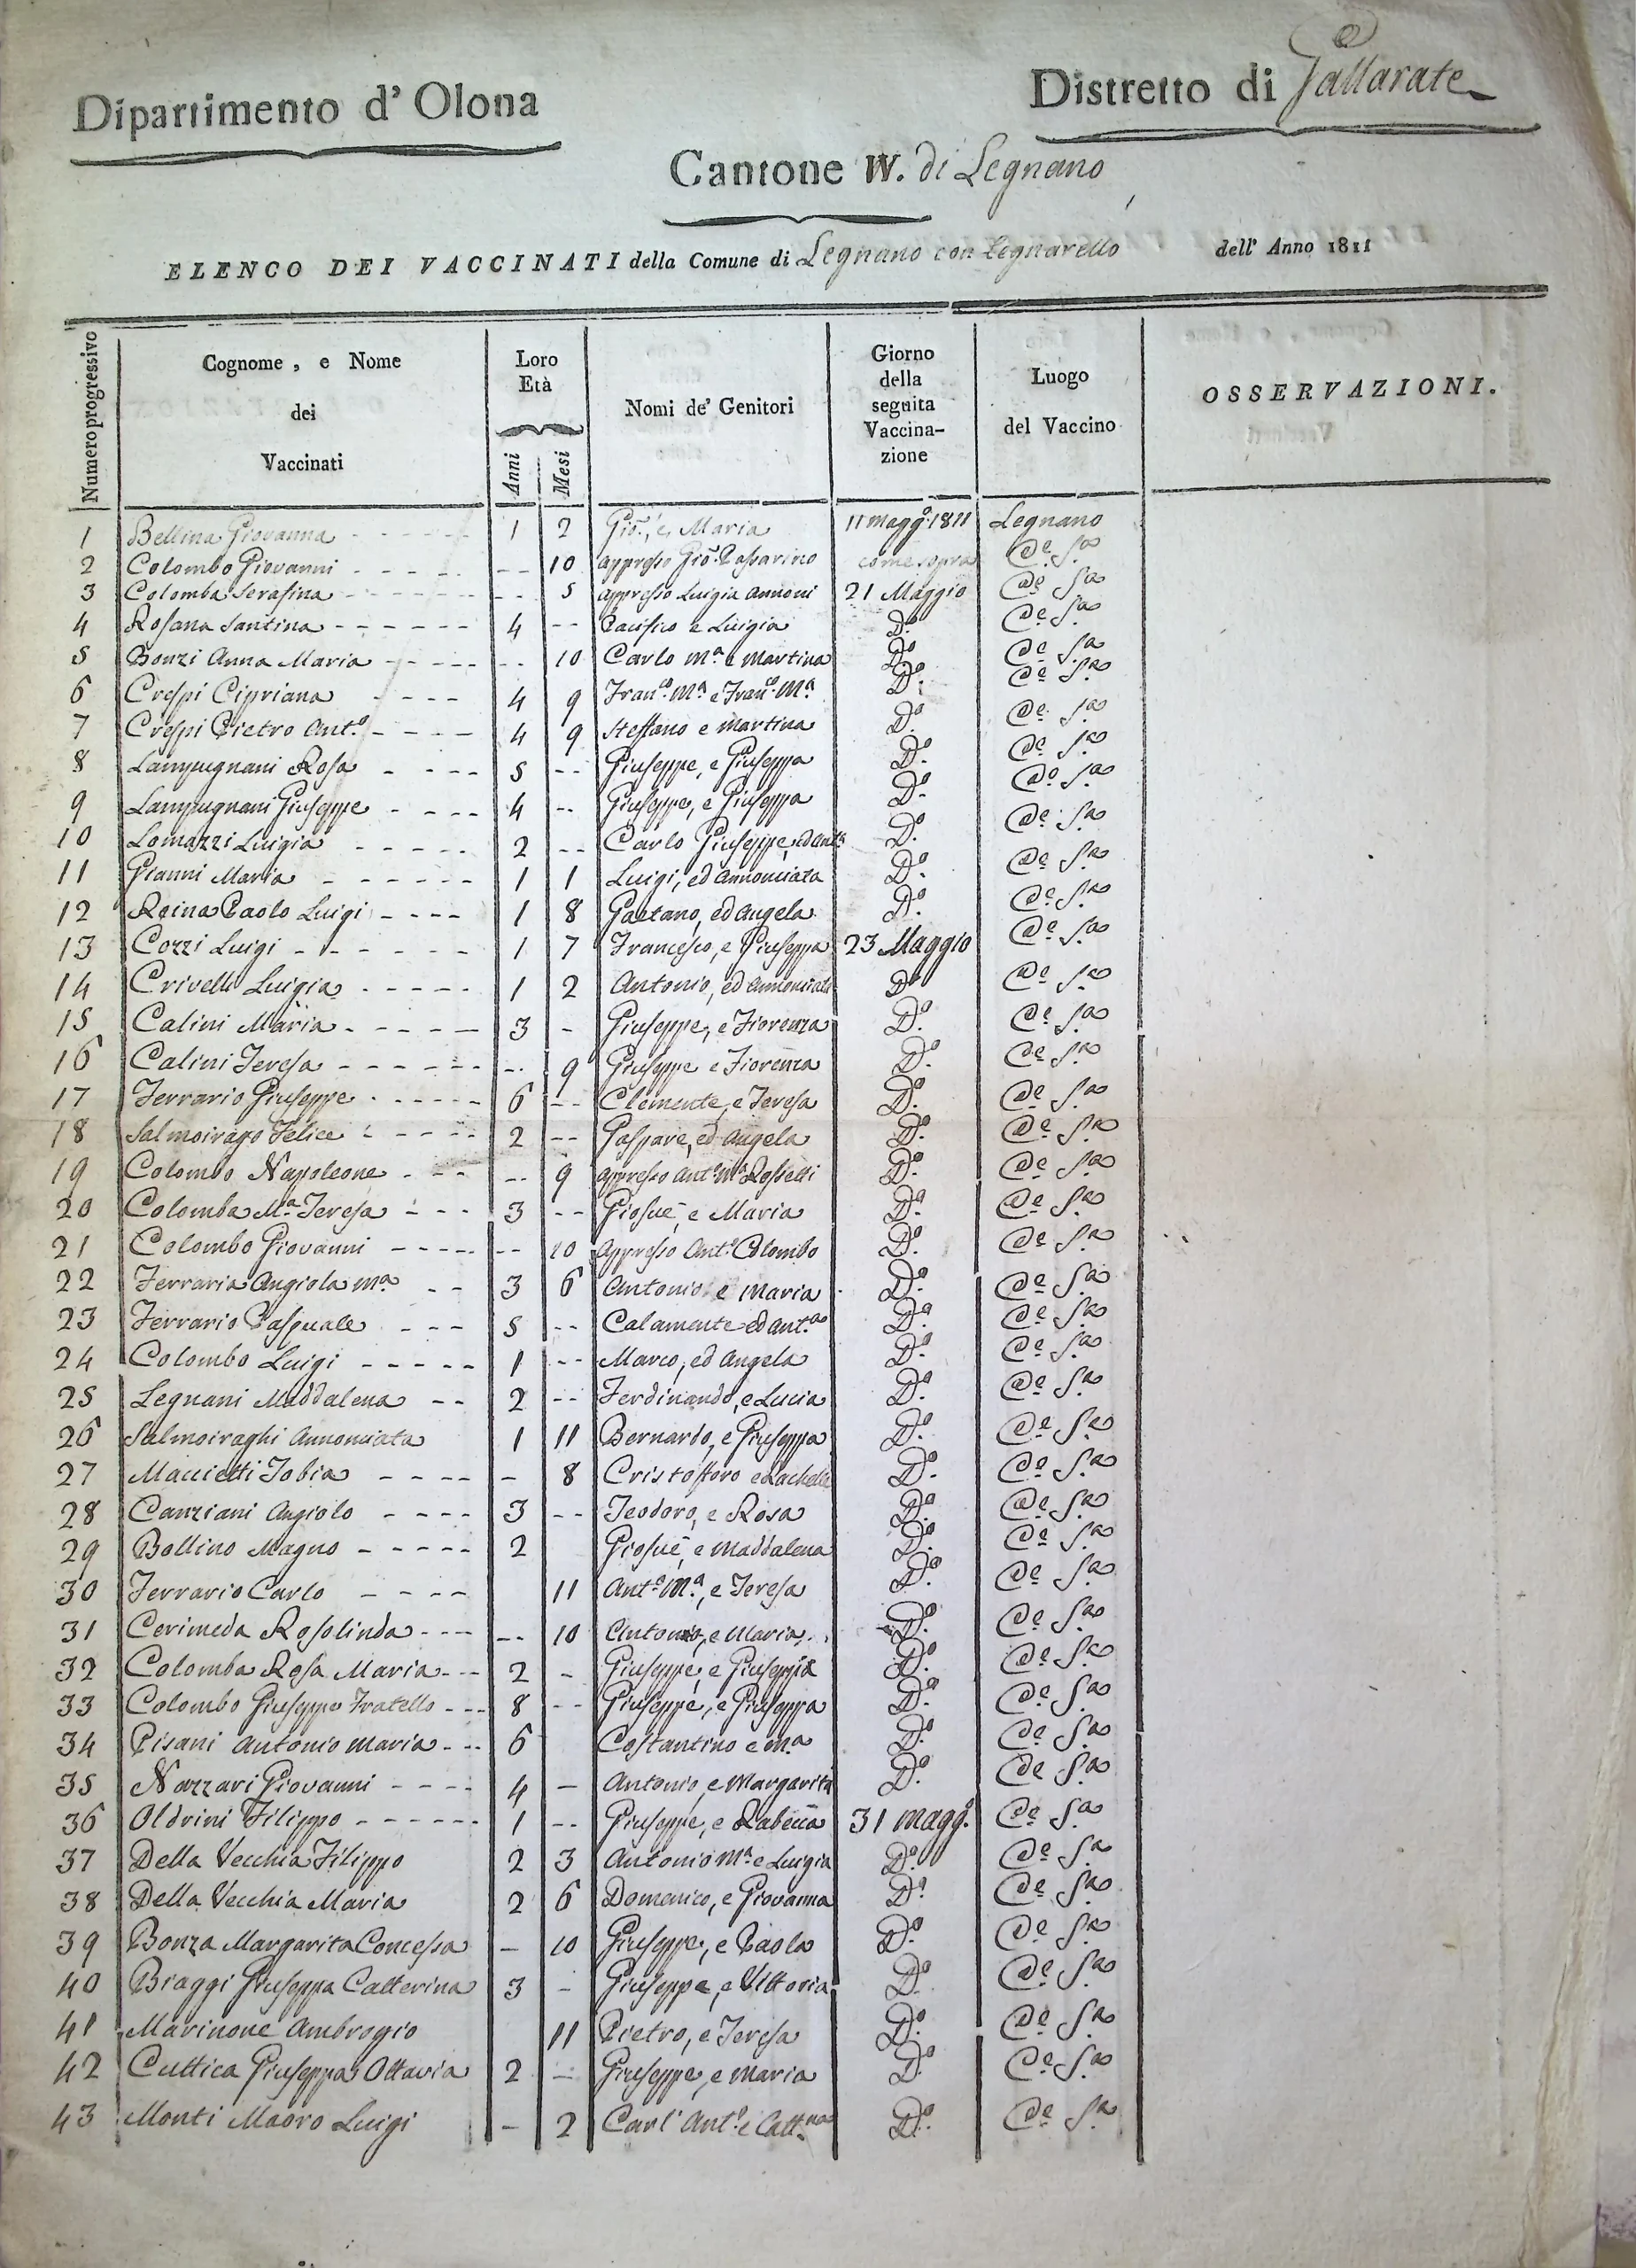 Dipartimento d' Olona
Distretto di Gallarate
Cantone IV. di Legnano
ELENCO DEI VACCINATI della Comune di Legnano con Legnarello dell' Anno 1811
Numero progressivo
Cognome, e Nome dei Vaccinati
Loro Età
Anni
Mesi
Nomi de' Genitori
Giorno della seguita Vaccina-zione
Luogo del Vaccino
OSSERVAZIONI.
1 Bellina Giovanna - - - - - 1 2 Gio., e Maria 11 magg.o 1811 Legnano
2 Colombo Giovanni - - - - - -- 10 appresso Gio. Passarino come sopra Ce. Sa
3 Colomba Serafina - - - - - -- 5 appresso Luigia Annoni 21 Maggio Ce. Sa
4 Rosana Santina - - - - - - 4 -- Pacifico e Luigia D.o Ce. Sa
5 Bonzi Anna Maria - - - - -- 10 Carlo M.a e Martina D.o Ce. Sa
6 Crespi Cipriana - - - - 4 9 Fran.o M.a e Fran.a M.a D.o Ce. Sa
7 Crespi Pietro Ant.o - - - - 4 9 Steffano e Martina D.o Ce. Sa
8 Lampugnani Rosa - - - - 5 -- Giuseppe, e Giuseppa D.o Ce. Sa
9 Lampugnani Giuseppe - - - - 4 -- Giuseppe, e Giuseppa D.o Ce. Sa
10 Lomazzi Luigia - - - - - 2 -- Carlo Giuseppe, ed Ant.a D.o Ce. Sa
11 Gianni Maria - - - - - - 1 1 Luigi, ed Annonciata D.o Ce. Sa
12 Reina Paolo Luigi - - - - 1 8 Gaetano, ed Angela D.o Ce. Sa
13 Cozzi Luigi - - - - - - 1 7 Francesco, e Giuseppa 23 Maggio Ce. Sa
14 Crivelli Luigia - - - - - 1 2 Antonio, ed Annonciata D.o Ce. Sa
15 Calini Maria - - - - - 3 - Giuseppe, e Fiorenza D.o Ce. Sa
16 Calini Teresa - - - - - - -- 9 Giuseppe e Fiorenza D.o Ce. Sa
17 Ferrario Giuseppe - - - - - - 6 -- Clemente, e Teresa D.o Ce. Sa
18 Salmoirago Felice - - - - - 2 -- Gaspare, ed Angela D.o Ce. Sa
19 Colombo Napoleone - - - -- 9 appresso Ant.o M.a Rossetti D.o Ce. Sa
20 Colomba M.a Teresa - - - 3 -- Giosuè, e Maria D.o Ce. Sa
21 Colombo Giovanni - - - - - -- 10 appresso Ant.o Colombo D.o Ce. Sa
22 Ferraria Angiola M.a - - 3 6 Antonio e Maria D.o Ce. Sa
23 Ferrario Pasquale - - - 5 -- Calamente ed Ant.a D.o Ce. Sa
24 Colombo Luigi - - - - - 1 -- Marco, ed Angela D.o Ce. Sa
25 Legnani Maddalena - - 2 -- Ferdinando, e Lucia D.o Ce. Sa
26 Salmoiraghi Annonciata 1 11 Bernardo, e Giuseppa D.o Ce. Sa
27 Maccietti Tobia - - - - - 8 Cristofforo e Rachelle D.o Ce. Sa
28 Canziani Angiolo - - - - 3 -- Teodoro, e Rosa D.o Ce. Sa
29 Bollino Magno - - - - - 2 Giosuè, e Maddalena D.o Ce. Sa
30 Ferrario Carlo - - - - 11 Ant.o M.a, e Teresa D.o Ce. Sa
31 Cerimeda Rosolinda - - - -- 10 Antonio, e Maria D.o Ce. Sa
32 Colomba Rosa Maria - - - 2 - Giuseppe, e Giuseppa D.o Ce. Sa
33 Colombo Giuseppe Fratello - - - 8 -- Giuseppe, e Giuseppa D.o Ce. Sa
34 Pisani Antonio Maria - - - 6 Costantino e M.a D.o Ce. Sa
35 Nazzari Giovanni - - - - 4 - Antonio, e Margarita D.o Ce. Sa
36 Oldrini Filippo - - - - - - 1 -- Giuseppe, e Rabecca 31 magg.o Ce. Sa
37 Della Vecchia Filippo 2 3 Antonio M.a e Luigia D.o Ce. Sa
38 Della Vecchia Maria 2 6 Domenico, e Giovanna D.o Ce. Sa
39 Bonza Margarita Concessa - 10 Giuseppe, e Paola D.o Ce. Sa
40 Biaggi Giuseppa Catterina 3 - Giuseppe, e Vittoria D.o Ce. Sa
41 Marinone Ambrogio 11 Pietro, e Teresa D.o Ce. Sa
42 Cuttica Giuseppa Ottavia 2 - Giuseppe, e Maria D.o Ce. Sa
43 Monti Mauro Luigi - 2 Carl' Ant.o e Catt.na D.o Ce. Sa